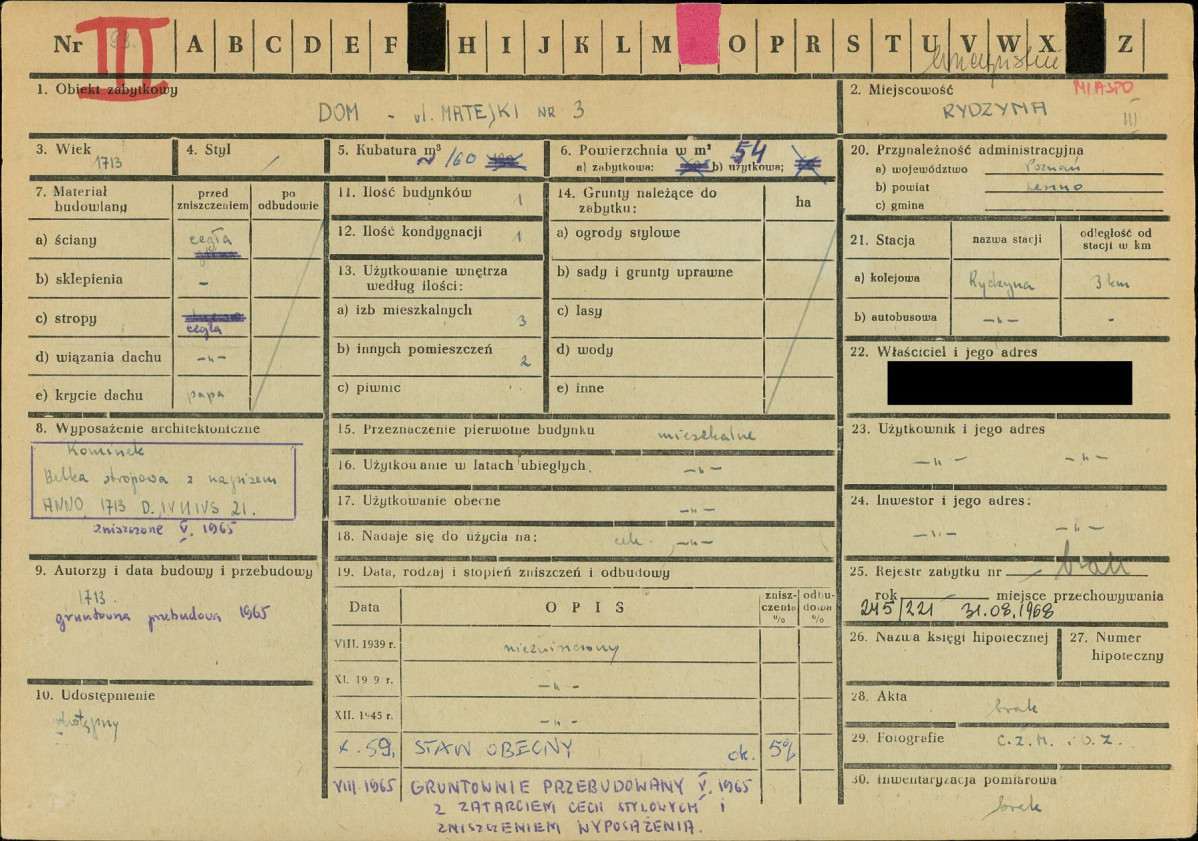 Nr 93. III A B C D E F H I J K L M O P R S T U V W X Z
1. Obiekt zabytkowy
DOM - ul. MATEJKI NR 3
2. Miejscowość
MIASTO
RYDZYNA
III
3. Wiek
1713
4. Styl
5. Kubatura m³
~ 160
6. Powierzchnia w m²
a) zabytkowa: b) użytkowa;
54
20. Przynależność administracyjna
a) województwo Poznań
b) powiat Leszno
c) gmina
7. Materiał budowlany
przed zniszczeniem
po odbudowie
a) ściany cegła
b) sklepienia -
c) stropy cegła
d) wiązania dachu -"-
e) krycie dachu papa
11. Ilość budynków 1
12. Ilość kondygnacji 1
13. Użytkowanie wnętrza
według ilości:
a) izb mieszkalnych 3
b) innych pomieszczeń 2
c) piwnic
14. Grunty należące do
zabytku: ha
a) ogrody stylowe
b) sady i grunty uprawne
c) lasy
d) wody
e) inne
21. Stacja nazwa stacji odległość od
stacji w km
a) kolejowa Rydzyna 3 km
b) autobusowa -"- -
22. Właściciel i jego adres
8. Wyposażenie architektoniczne
Kominek
Belka stropowa z napisem
ANNO 1713 D. IVNIVS 21.
zniszczone V. 1965
15. Przeznaczenie pierwotne budynku mieszkalne
16. Użytkowanie w latach ubiegłych. -"-
17. Użytkowanie obecne -"-
18. Nadaje się do użycia na: -"-
23. Użytkownik i jego adres
-"- -"-
24. Inwestor i jego adres:
-"- -"-
9. Autorzy i data budowy i przebudowy
1713.
gruntowna przebudowa 1965
19. Data, rodzaj i stopień zniszczeń i odbudowy
Data OPIS znisz-
czenia
% odbu-
dowa
%
VIII. 1939 r. niezniszczony
XI. 19 9 r. -"-
XII. 1945 r. -"-
X. 59, STAN OBECNY ok. 5%
VIII. 1965 GRUNTOWNIE PRZEBUDOWANY V. 1965
Z ZATARCIEM CECH STYLOWYCH I
ZNISZCZENIEM WYPOSAŻENIA.
25. Rejestr zabytku nr brak
rok miejsce przechowywania
245/221 31.08.1968
26. Nazwa księgi hipotecznej
27. Numer
hipoteczny
10. Udostępnienie
dostępny
28. Akta
brak
29. Fotografie C.Z.M. i O.Z.
30. Inwentaryzacja pomiarowa
brak